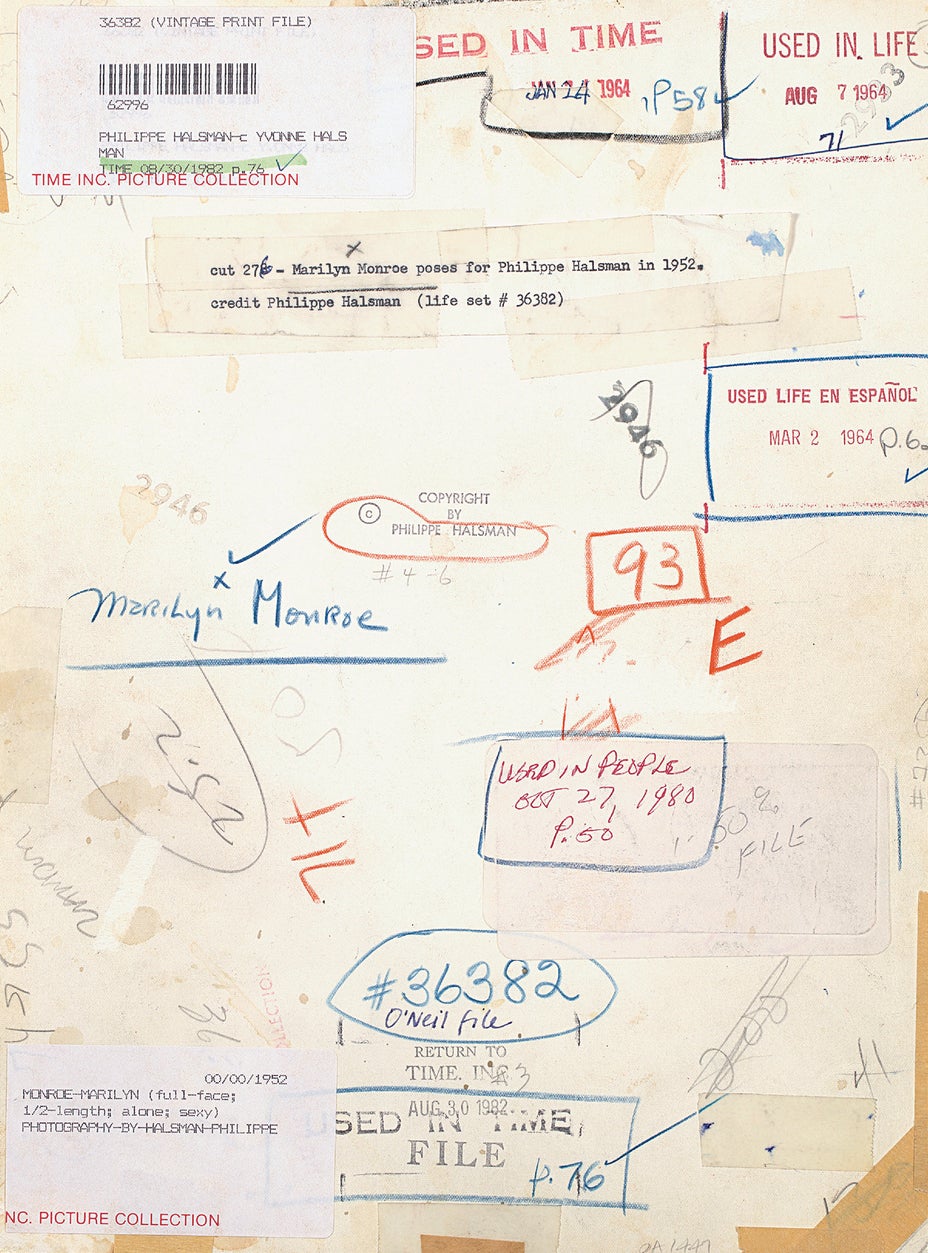 36382 (VINTAGE PRINT FILE)
62996
PHILIPPE HALSMAN-c YVONNE HALS
MAN
TIME 08/30/1982 p.76
TIME INC. PICTURE COLLECTION
SED IN TIME
JAN 24 1964 P58
USED IN LIFE
AUG 7 1964
71
2993
cut 276 - Marilyn Monroe poses for Philippe Halsman in 1952.
credit Philippe Halsman (life set # 36382)
2946
USED LIFE EN ESPAÑOL
MAR 2 1964 p.6
2946
COPYRIGHT
BY
© PHILIPPE HALSMAN
# 4-6
93
E
x
Marilyn Monroe
USED IN PEOPLE
OCT 27, 1980
P.50
50%
FILE
#36382
O'Neil file
RETURN TO
TIME. INC
AUG 30 1982
SED IN TIME
FILE
p.76
00/00/1952
MONROE-MARILYN (full-face;
1/2-length; alone; sexy)
PHOTOGRAPHY-BY-HALSMAN-PHILIPPE
NC. PICTURE COLLECTION